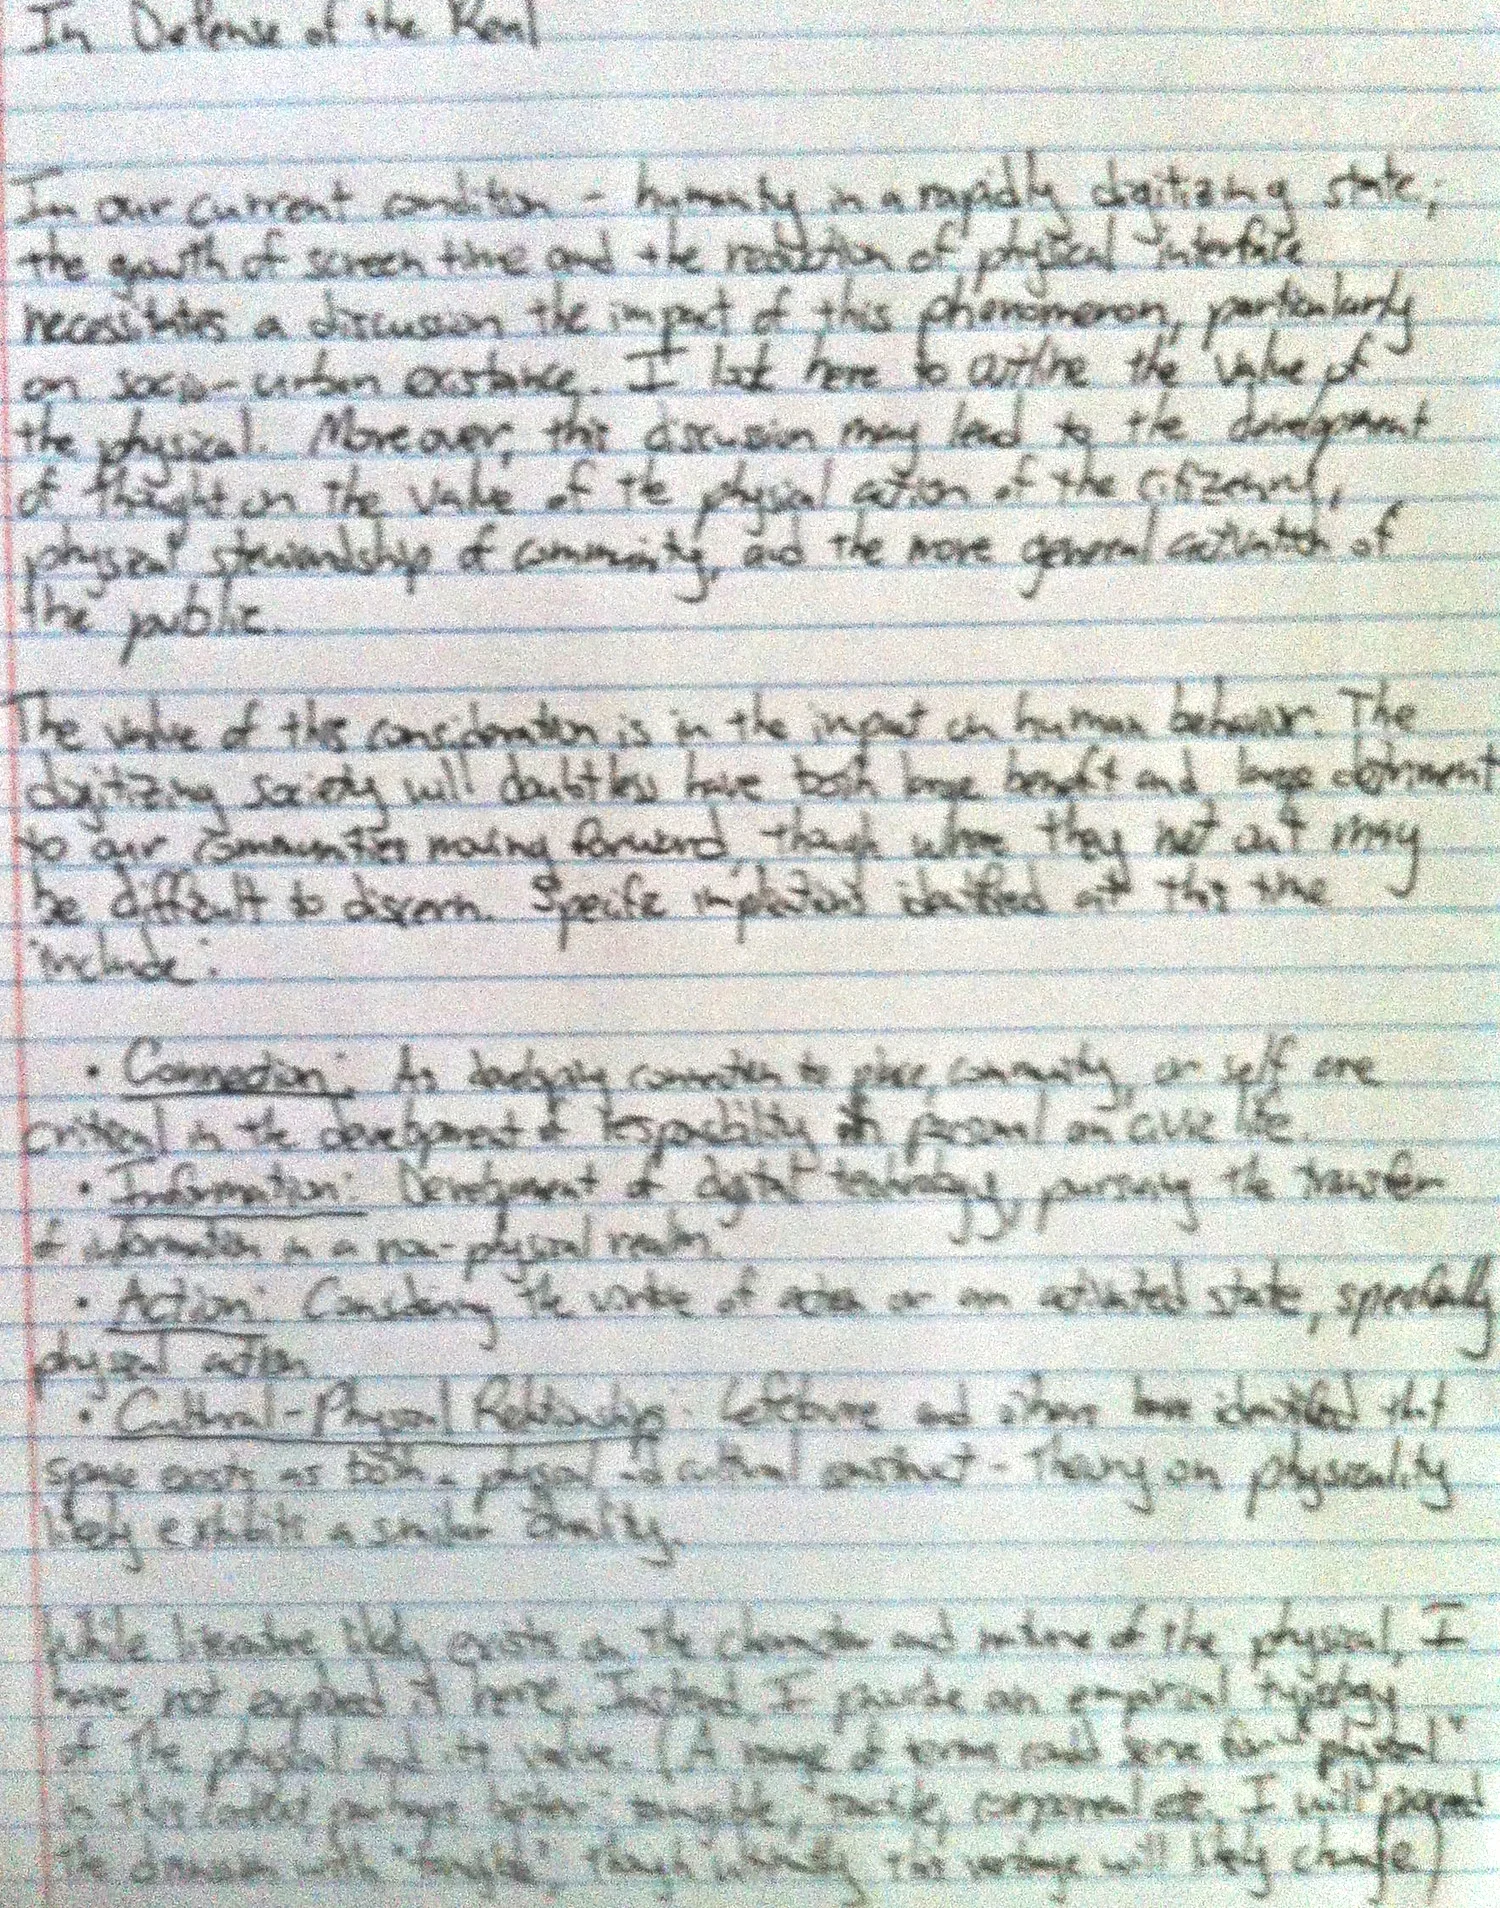 In Defense of the Real
In our current condition - humanity in a rapidly digitizing state,
the growth of screen time and the reduction of physical interface
necessitates a discussion the impact of this phenomenon, particularly
on socio-urban existance. I look here to outline the value of
the physical. Moreover, this discussion may lead to the development
of thought on the value of the physical action of the citizenry,
physical stewardship of community, and the more general activation of
the public.
The value of this consideration is in the impact on human behavior. The
digitizing society will doubtless have both large benefit and large detriment
to our communities moving forward, though where they net out may
be difficult to discern. Specific implications identified at this time
include:
• Connection: As developing connection to place, community, or self are
critical in the development of responsibility in personal or civic life.
• Information: Development of digital technology, pursuing the transfer
of information in a non-physical realm.
• Action: Considering the virtue of action or an activated state, specifically
physical action
• Cultural-Physical Relationship: Lefebvre and others have identified that
space exists as both a physical and cultural construct - theory on physicality
likely exhibits a similar duality.
While literature likely exists on the character and nature of the physical, I
have not explored it here. Instead I provide an empirical typology
of the physical and its value. (A range of terms could serve for "physical"
in this context, perhaps better: tangible, tactile, corporeal etc. I will proceed
the discussion with "tangible" though this verbiage will likely change)